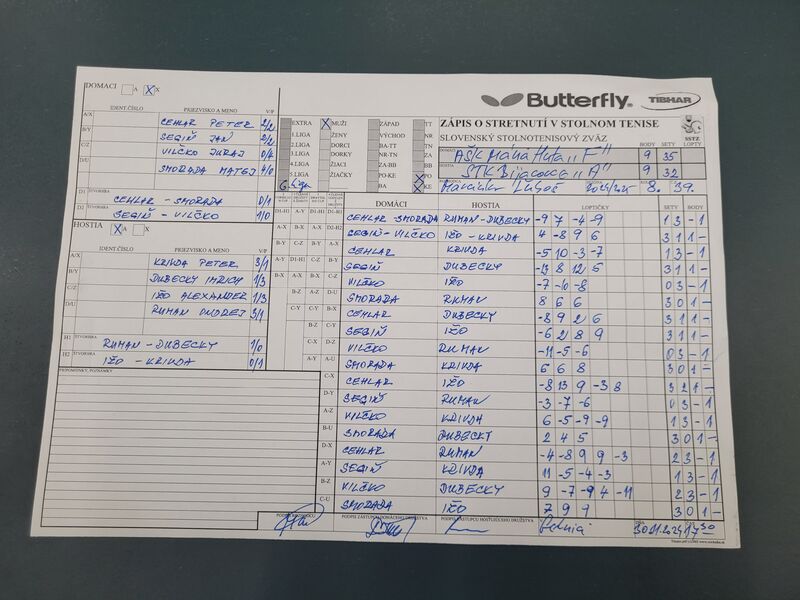 Butterfly TIBHAR
ZÁPIS O STRETNUTÍ V STOLNOM TENISE
SLOVENSKÝ STOLNOTENISOVÝ ZVÄZ
SSTZ
BODY SETY LOPTY
AŠK Maná Huta "F" 9 35
STK Bijacovce "A" 9 32
2024/2025 8. 39.
DOMACI A X X
IDENT.ČÍSLO PRIEZVISKO A MENO V/P
A/X CEHLAR PETER 2/2
B/Y SEGIŇ JÁN 2/2
C/Z VILČKO JURAJ 0/4
D/U SMORADA MATEJ 4/0
D1 ŠTVORHRA CEHLAR - SMORADA 0/1
D2 ŠTVORHRA SEGIŇ - VILČKO 1/0
HOSTIA X A X
IDENT.ČÍSLO PRIEZVISKO A MENO V/P
A/X KRIVDA PETER 3/1
B/Y DUBECKY IMRICH 1/3
C/Z IŽO ALEXANDER 1/3
D/U RUMAN ONDREJ 3/1
H1 ŠTVORHRA RUMAN - DUBECKY 1/0
H2 ŠTVORHRA IŽO - KRIVDA 0/1
PRIPOMIENKY, POZNÁMKY
EXTRA X MUŽI ZÁPAD TT
1.LIGA ŽENY VÝCHOD NR
2.LIGA DORCI BA-TT TN
3.LIGA DORKY NR-TN ZA
4.LIGA ŽIACI ZA-BB BB
5.LIGA ŽIAČKY PO-KE X PO
6. liga BA X KE
DOMÁCI HOSTIA LOPTIČKY SETY BODY
CEHLAR-SMORADA RUMAN-DUBECKY -9 7 -4 -9 1 3 - 1
SEGIŇ-VILČKO IŽO-KRIVDA 4 -8 9 6 3 1 1 -
CEHLAR KRIVDA -5 10 -3 -7 1 3 - 1
SEGIŇ DUBECKY -13 8 12 5 3 1 1 -
VILČKO IŽO -7 -6 -8 0 3 - 1
SMORADA RUMAN 8 6 6 3 0 1 -
CEHLAR DUBECKY -8 9 2 6 3 1 1 -
SEGIŇ IŽO -6 2 8 9 3 1 1 -
VILČKO RUMAN -11 -5 -6 0 3 - 1
SMORADA KRIVDA 6 6 8 3 0 1 -
CEHLAR IŽO -8 13 9 -3 8 3 2 1 -
SEGIŇ RUMAN -3 -7 -6 0 3 - 1
VILČKO KRIVDA 6 -5 -9 -9 1 3 - 1
SMORADA DUBECKY 2 4 5 3 0 1 -
CEHLAR RUMAN -4 -8 9 9 -3 2 3 - 1
SEGIŇ KRIVDA 11 -5 -4 -3 1 3 - 1
VILČKO DUBECKY 9 -7 -9 4 -11 2 3 - 1
SMORADA IŽO 7 9 9 3 0 1 -
PODPIS ZÁSTUPCU DOMÁCEHO DRUŽSTVA
PODPIS ZÁSTUPCU HOSŤUJÚCEHO DRUŽSTVA